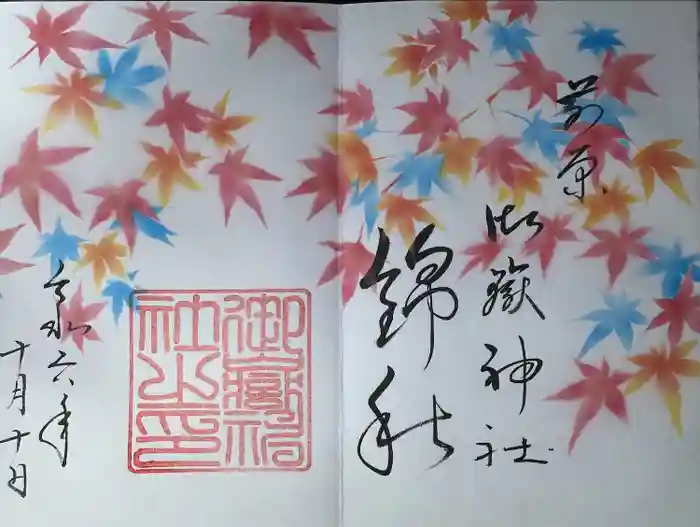 前原
御嶽神社
錦秋
御嶽神社之印
令和六年
十月十日